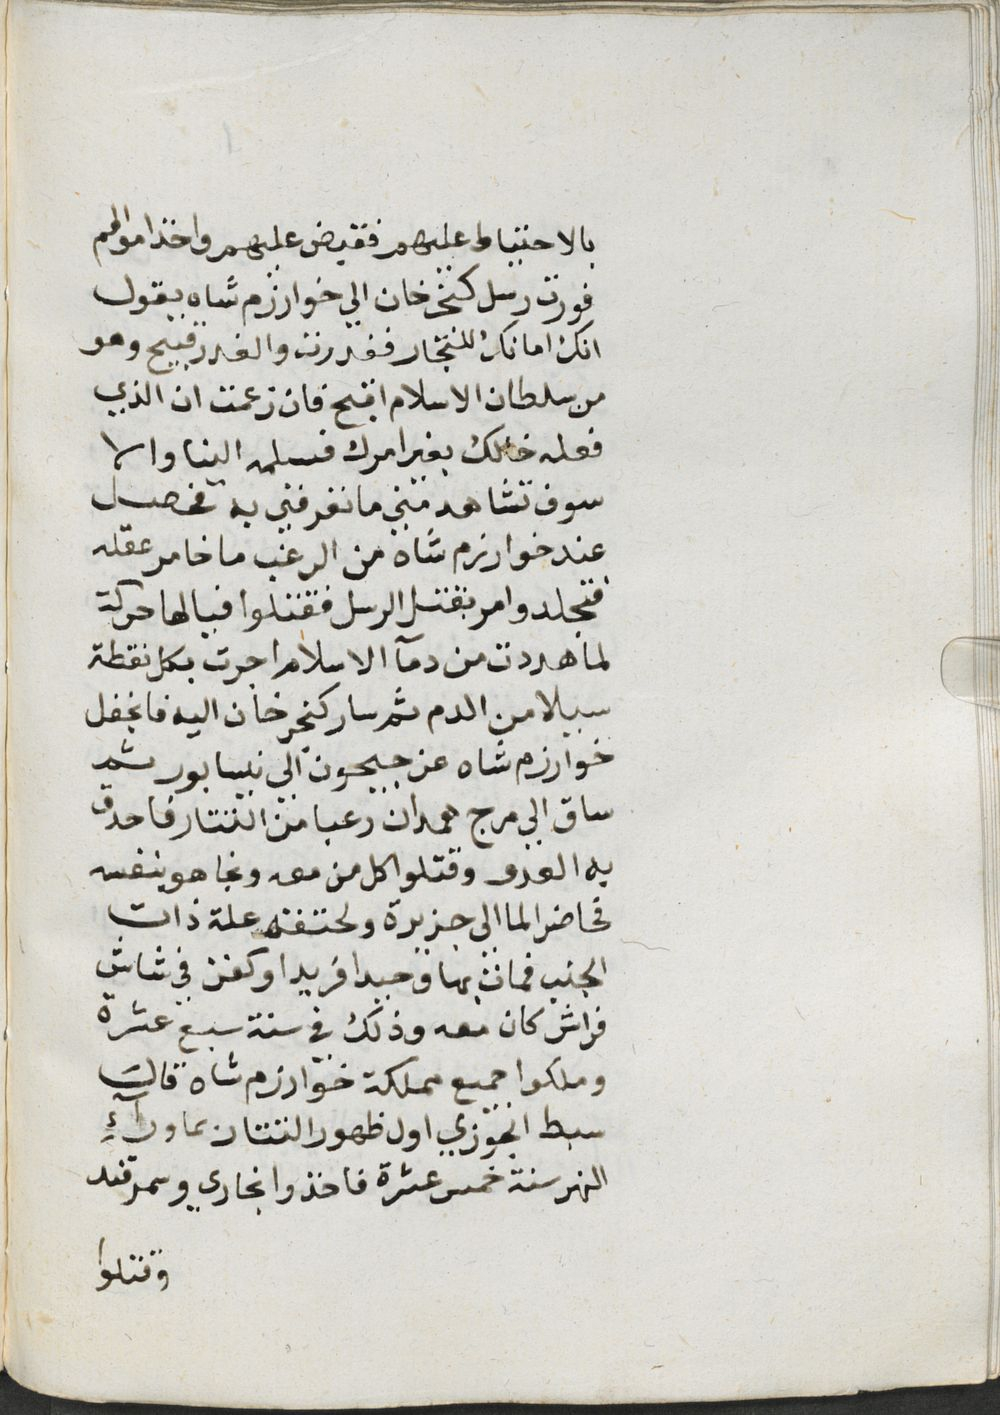 بالاحتياط عليهم فقبض عليهم واخذ اموالهم
فوردت رسل كنجز خان الي خوارزم شاه يقول
انك امانك للتجار فغدرت والغدر قبيح وهو
من سلطان الاسلام اقبح فان زعمت ان الذي
فعله خالك بغير امرك فسلمه الينا والا
سوف تشاهد مني ما تعرفني به فحصل
عند خوارزم شاه من الرعب ما خامر عقله
فتجلد وامر بقتل الرسل فقتلوا فيالها حركة
لما هدرت من دمآ الاسلام اجرت بكل نقطة
سيلا من الدم ثم سار كنجز خان اليه فانجفل
خوارزم شاه عن جيحون الي نيسابور ثم
ساق الي مرج همدان رعبا من التتار فاحدق
به العدو وقتلوا كل من معه ونجا هو بنفسه
فخاض الما الي جزيرة ولحقته علة ذات
الجنب فمات بها وحيدا فريدا وكفن في شاش
فراش كان معه وذلك في سنة سبع عشرة
وملكوا جميع مملكة خوارزم شاه قال
سبط الجوزي اول ظهور التتار بما ورآءِ
النهر سنة خمس عشرة فاخذوا بخاري وسمرقند
وقتلوا